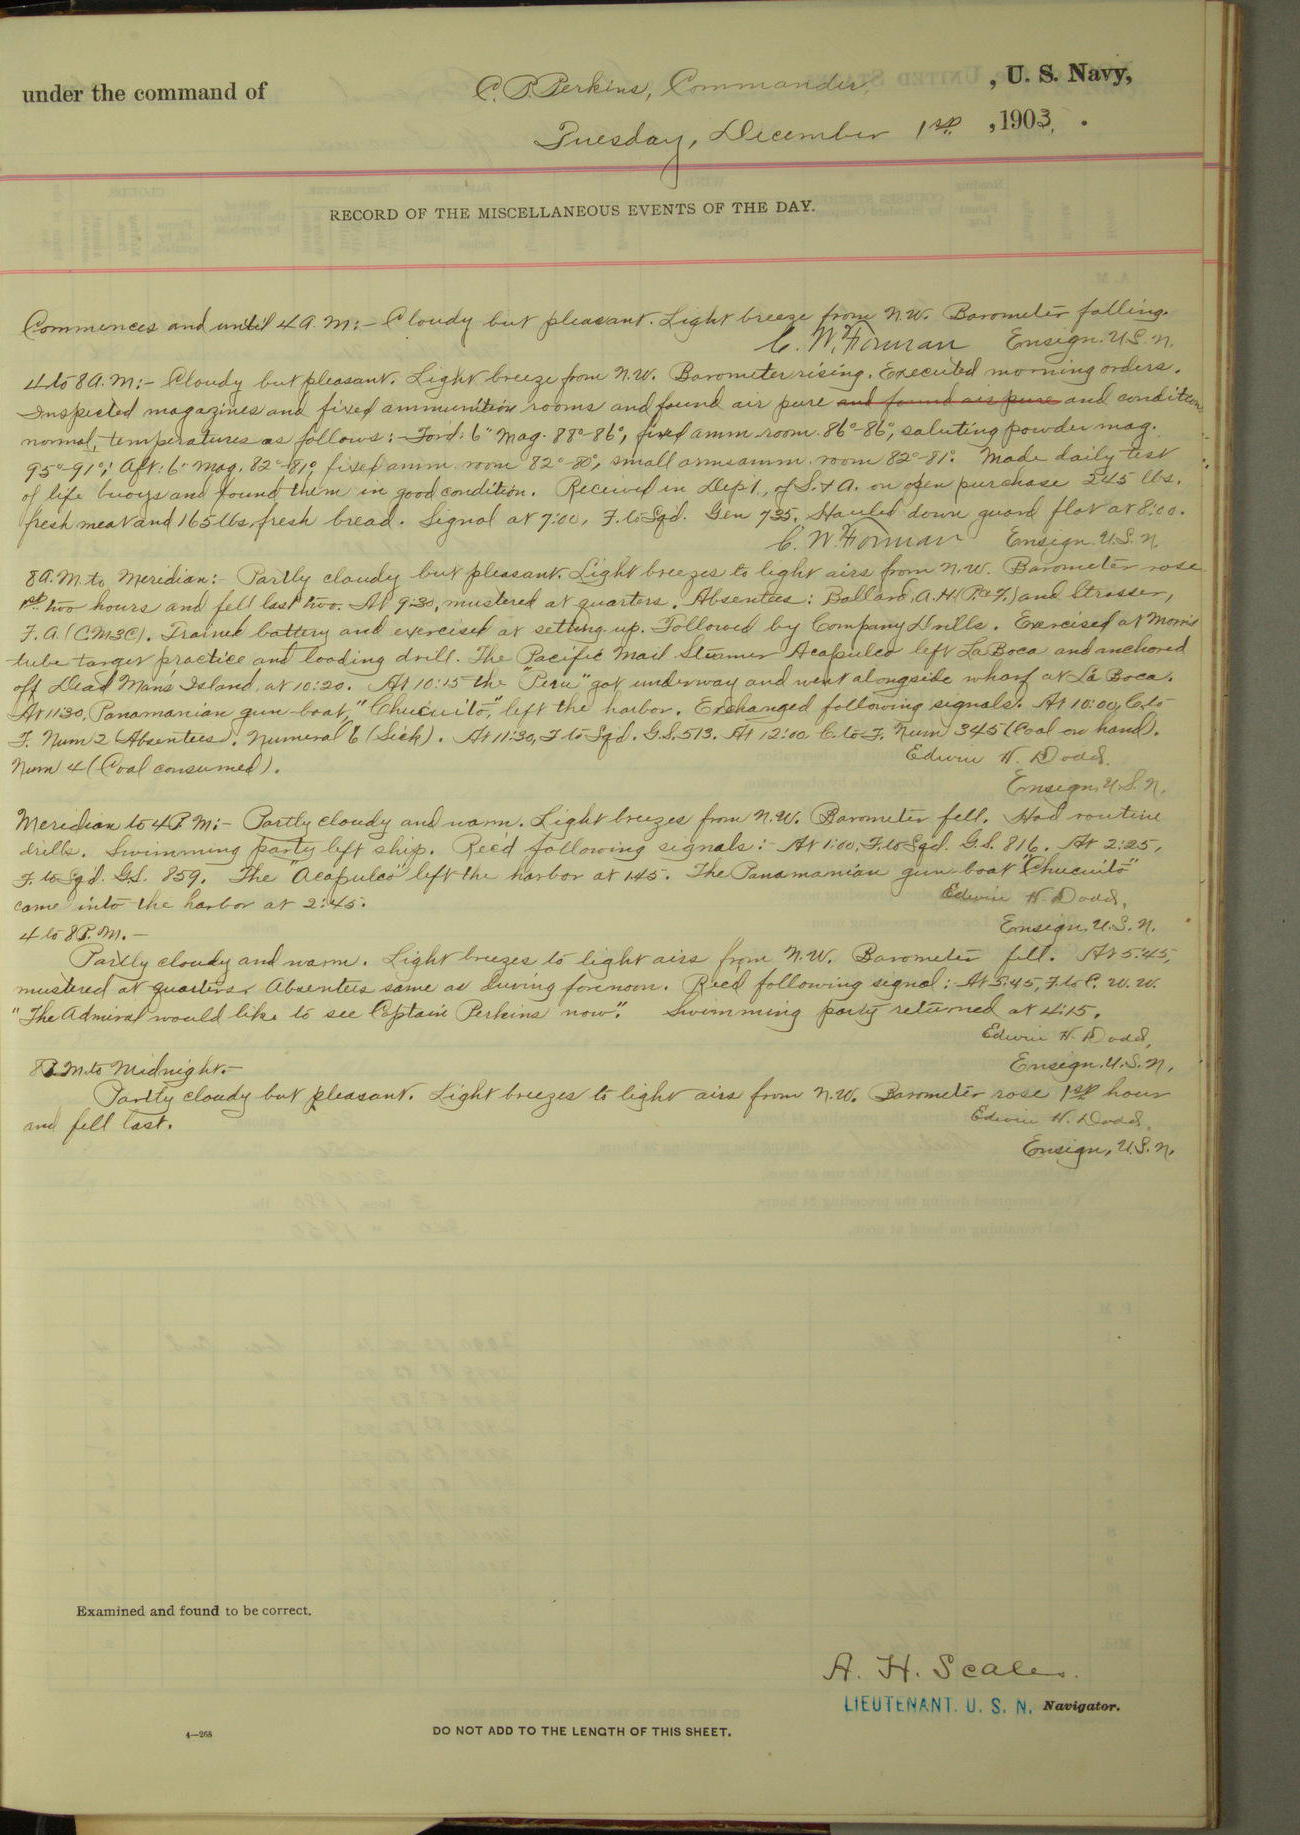 under the command of C. P. Perkins, Commander, , U. S. Navy,
Tuesday, December 1st , 1903.
RECORD OF THE MISCELLANEOUS EVENTS OF THE DAY.
Commences and until 4 A.M:- Cloudy but pleasant. Light breeze from N.W. Barometer falling.
C. W. Forman Ensign. U.S.N.
4 to 8 A.M:- Cloudy but pleasant. Light breeze from N.W. Barometer rising. Executed morning orders.
Inspected magazines and fixed ammunition rooms and found air pure and found air pure and condition
normal, temperatures as follows:- Ford: 6" Mag. 88°-86°, fixed amm. room 86°-86°, saluting powder mag.
95°-91°; Aft: 6" Mag. 82°-81°, fixed amm. room 82°-80°, small arms amm. room 82°-81°. Made daily test
of life buoys and found them in good condition. Received in Dept. of S. & A. on open purchase 245 lbs.
fresh meat and 165 lbs. fresh bread. Signal at 7:00, F. to Sqd. Gen 735. Hauled down guard flat at 8:00.
C. W. Forman Ensign. U.S.N.
8 A.M. to Meridian:- Partly cloudy but pleasant. Light breezes to light airs from N.W. Barometer rose
1st two hours and fell last two. At 9:30, mustered at quarters. Absentees: Ballard, A.H. and Strasser,
F. A. (CM3C). Trained battery and exercised at setting-up. Followed by Company Drills. Exercised at Morris
tube target practice and loading drill. The Pacific Mail Steamer Acapulco left La Boca and anchored
off Dead Man's Island, at 10:20. At 10:15 the "Peru" got underway and went alongside wharf at La Boca.
At 11:30, Panamanian gun-boat, "Chucuito," left the harbor. Exchanged following signals. At 10:00, C. to
F. Num 2 (Absentees). Numeral 6 (Sick). At 11:30, F to Sqd. G.S. 513. At 12:00 C. to F. Num 345 (Coal on hand).
Num 4 (Coal consumed). Edwin H. Dodd.
Ensign, U.S.N.
Meridian to 4 P.M:- Partly cloudy and warm. Light breezes from N.W. Barometer fell. Had routine
drills. Swimming party left ship. Rec'd following signals:- At 1:00, F. to Sqd. G.S. 816. At 2:25,
F. to Sqd. G.S. 859. The "Acapulco" left the harbor at 1:45. The Panamanian gun boat "Chucuito"
came into the harbor at 2:45. Edwin H. Dodd,
Ensign, U.S.N.
4 to 8 P.M.-
Partly cloudy and warm. Light breezes to light airs from N.W. Barometer fell. At 5:45,
mustered at quarters. Absentees same as during forenoon. Rec'd following signal: At 5:45, F. to C. W. W.
"The Admiral would like to see Captain Perkins now". Swimming party returned at 4:15.
Edwin H. Dodd,
Ensign, U.S.N.
8 P.M. to Midnight.-
Partly cloudy but pleasant. Light breezes to light airs from N.W. Barometer rose 1st hour
and fell last. Edwin H. Dodd.
Ensign, U.S.N.
Examined and found to be correct.
A. H. Scales.
LIEUTENANT. U. S. N. Navigator.
4—268
DO NOT ADD TO THE LENGTH OF THIS SHEET.